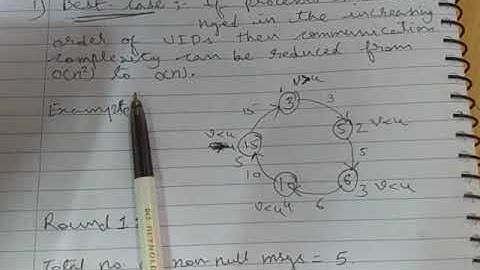 1) Best case :- If processor
nged in the increasing
order of UIDs then communication
complexity can be reduced from
O(n²) to O(n).
Example
v>u
3
3
15
5
2
v<u
v<u
15
5
5
10
10
6
3
v<u
6
v<u
4
Round 1:
Total no. of non null msgs = 5.